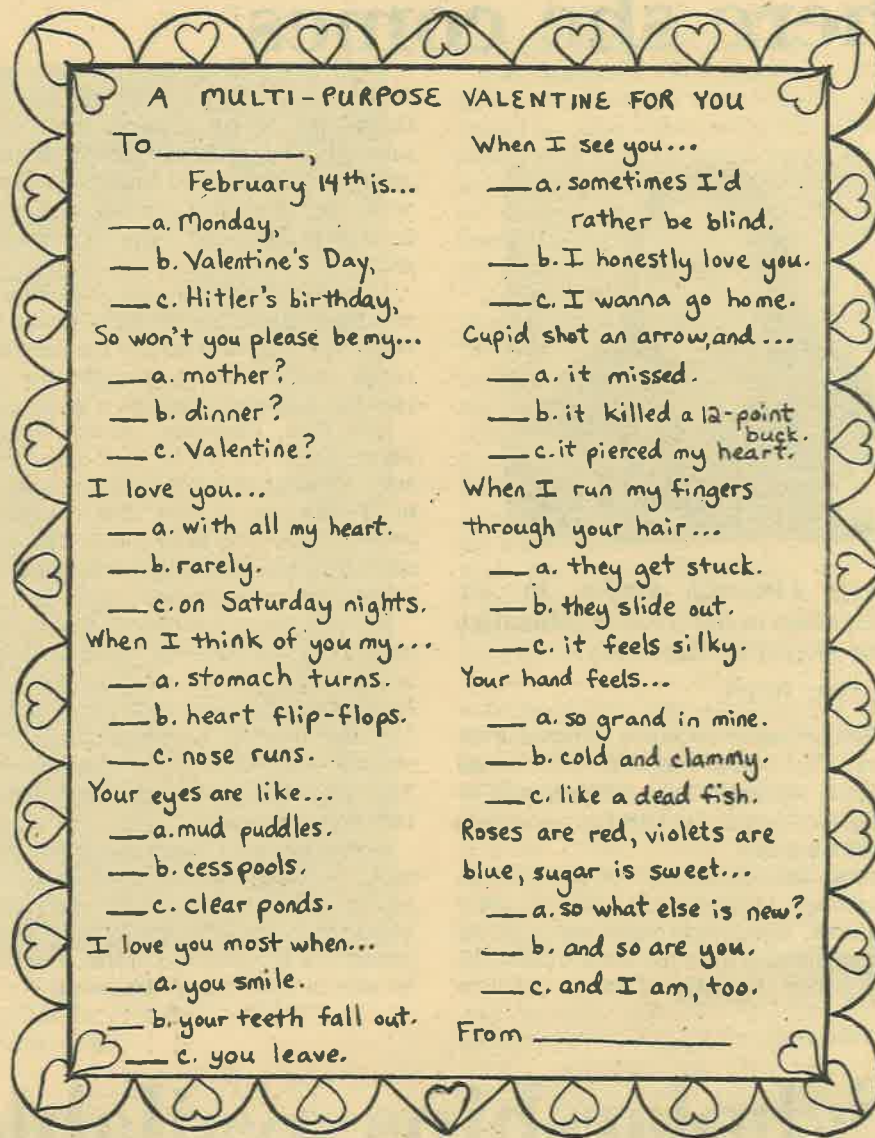 A MULTI-PURPOSE VALENTINE FOR YOU
To__________,
February 14th is...
___a. Monday,
___b. Valentine's Day,
___c. Hitler's birthday,
So won't you please be my...
___a. mother?
___b. dinner?
___c. Valentine?
I love you...
___a. with all my heart.
___b. rarely.
___c. on Saturday nights.
When I think of you my...
___a. stomach turns.
___b. heart flip-flops.
___c. nose runs.
Your eyes are like...
___a. mud puddles.
___b. cesspools.
___c. clear ponds.
I love you most when...
___a. you smile.
___b. your teeth fall out.
___c. you leave.
When I see you...
___a. sometimes I'd
rather be blind.
___b. I honestly love you.
___c. I wanna go home.
Cupid shot an arrow, and...
___a. it missed.
___b. it killed a 12-point
buck.
___c. it pierced my heart.
When I run my fingers
through your hair...
___a. they get stuck.
___b. they slide out.
___c. it feels silky.
Your hand feels...
___a. so grand in mine.
___b. cold and clammy.
___c. like a dead fish.
Roses are red, violets are
blue, sugar is sweet...
___a. so what else is new?
___b. and so are you.
___c. and I am, too.
From ______________